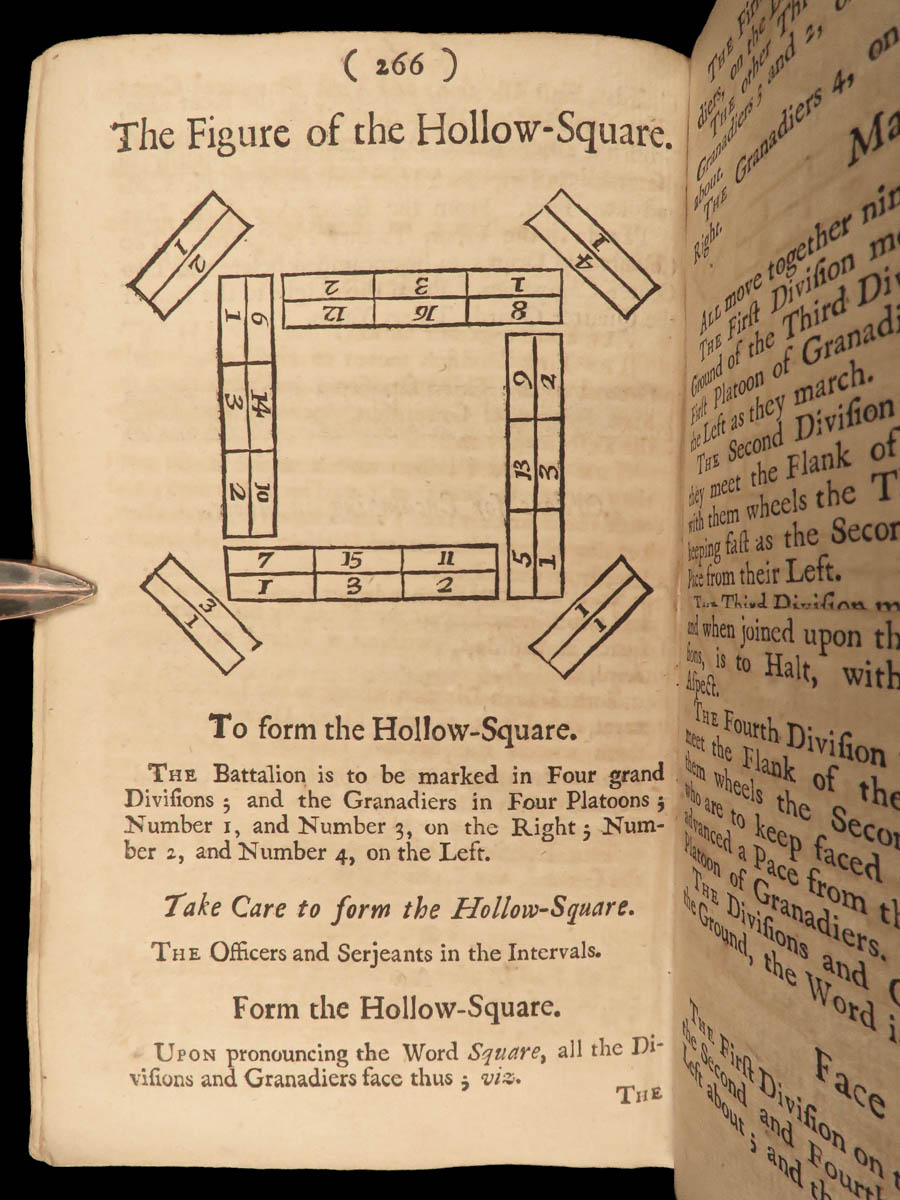 ( 266 )
The Figure of the Hollow-Square.
1 2
4 1
2 3 1
12 16 8
1 3 2
6 14 10
9 13 5
2 3 1
7 15 11
1 3 2
3 1
1 1
To form the Hollow-Square.
THE Battalion is to be marked in Four grand
Diviſions ; and the Granadiers in Four Platoons ;
Number 1, and Number 3, on the Right ; Num-
ber 2, and Number 4, on the Left.
Take Care to form the Hollow-Square.
THE Officers and Serjeants in the Intervals.
Form the Hollow-Square.
UPON pronouncing the Word Square, all the Di-
viſions and Granadiers face thus ; viz.
THE
THE Firſt
diers, on the
THE other
Granadiers 3 and 2,
about.
THE Granadiers 4, on
Right.
Ma
ALL move together
THE Firſt Diviſion
Ground of the Third
Firſt Platoon of
the Left as they march.
THE Second Diviſion
they meet the Flank of
with them wheels the
keeping faſt as the
Pace from their Left.
THE Third Diviſion
and when joined upon
is to Halt, with
Aſpect.
THE Fourth Diviſion
meet the Flank of the
them wheels the
who are to keep faced
advanced a Pace from
Platoon of Granadiers.
THE Diviſions and
the Ground, the Word
Face
THE Firſt Diviſion on
the Second and
Left about ; and